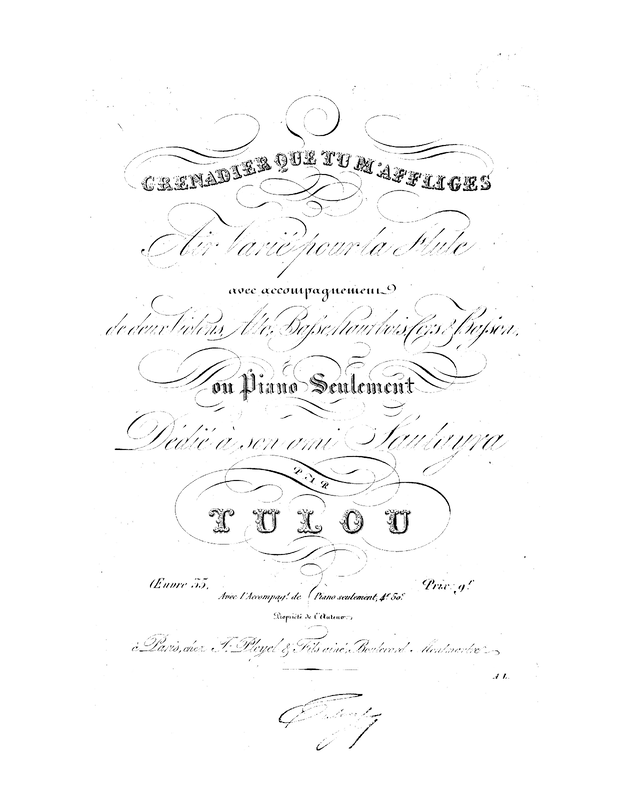 GRENADIER QUE TU M'AFFLIGES
Air Varié pour la Flute
avec accompagnement
de deux Violons, Alto, Basse, Hautbois, Cors & Basson,
ou Piano Seulement
Dédié à son ami
PAR
TULOU
Œuvre 33.
Prix: 9f
Avec l'Accompagt. de Piano seulement, 4f 50c
Propriété de l'Auteur.
à Paris, chez I. Pleyel & Fils ainé, Boulevard Montmartre